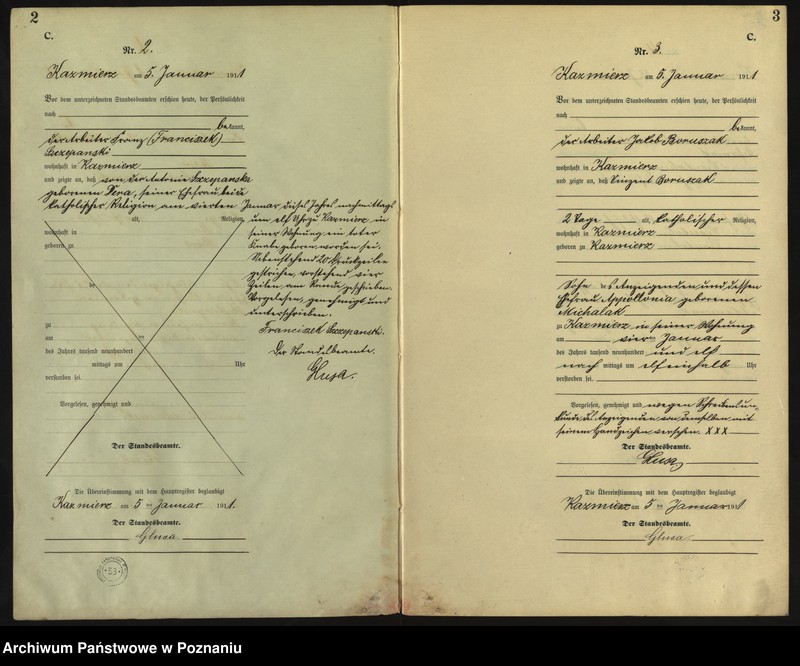 2
C.
Nr. 2.
Kazmierz am 5. Januar 1911
Vor dem unterzeichneten Standesbeamten erschien heute, der Persönlichkeit
nach
bekannt,
der Arbeiter Franz (Franciszek)
Szczepanski
wohnhaft in Kazmierz
und zeigte an, daß von der Antonie Szczepanska
geborenen Pera, seiner Ehefrau, beide
katholischer Religion am vierten Januar dieses Jahres nachmittags
um elf Uhr zu Kazmierz in
seiner Wohnung ein toter
Knabe geboren worden sei.
Nebenstehend 20 Druckzeilen
gestrichen, vorstehend vier
Zeilen am Rande geschrieben.
Vorgelesen, genehmigt und
unterschrieben.
Franciszek Szczepanski.
Der Standesbeamte.
Glusa.
alt, Religion,
wohnhaft in
geboren zu
zu
am ten
des Jahres tausend neunhundert
mittags um Uhr
verstorben sei.
Vorgelesen, genehmigt und
Der Standesbeamte.
Die Übereinstimmung mit dem Hauptregister beglaubigt
Kazmierz am 5 ten Januar 1911.
Der Standesbeamte.
Glusa
53
3
C.
Nr. 3.
Kazmierz am 5. Januar 1911
Vor dem unterzeichneten Standesbeamten erschien heute, der Persönlichkeit
nach
bekannt,
der Arbeiter Jakob Boruszak
wohnhaft in Kazmierz
und zeigte an, daß Vinzent Boruszak
2 Tage alt, katholischer Religion,
wohnhaft in Kazmierz
geboren zu Kazmierz
Sohn des Anzeigenden und dessen
Ehefrau Appollonia geborenen
Michalak
zu Kazmierz in seiner Wohnung
am vier ten Januar
des Jahres tausend neunhundert und elf
nach mittags um elfeinhalb Uhr
verstorben sei.
Vorgelesen, genehmigt und wegen Schreibensun-
kunde des Anzeigenden von demselben mit
seinem Handzeichen versehen. XXX
Der Standesbeamte.
Glusa
Die Übereinstimmung mit dem Hauptregister beglaubigt
Kazmierz am 5 ten Januar 1911
Der Standesbeamte.
Glusa
Archiwum Państwowe w Poznaniu